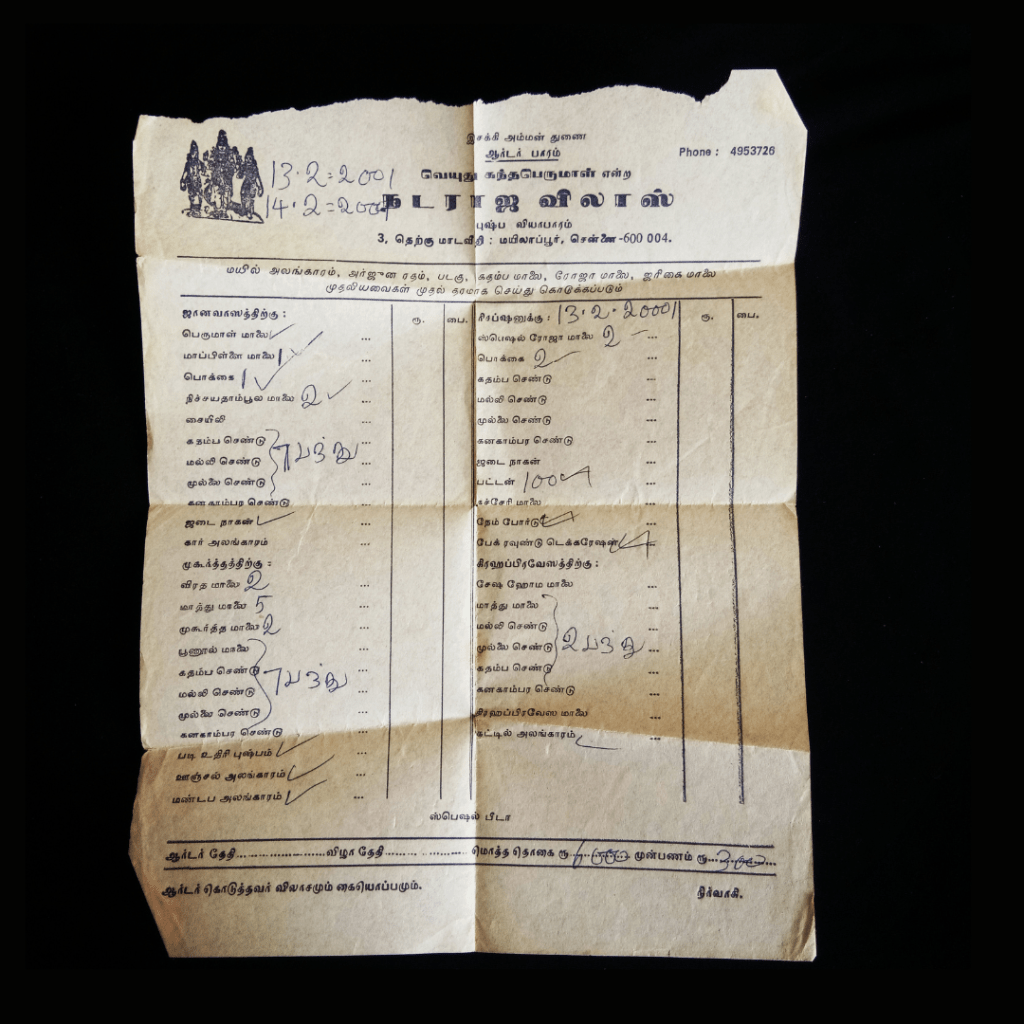 இசக்கி அம்மன் துணை
ஆர்டர் பாரம்
Phone : 4953726
13.2=2001
14.2=2001
வெயுது கந்தபெருமாள் என்ற
நடராஜ விலாஸ்
புஷ்ப வியாபாரம்
3, தெற்கு மாடவீதி : மயிலாப்பூர், சென்னை-600 004.
மயில் அலங்காரம், அர்ஜுன ரதம், படகு, கதம்ப மாலை, ரோஜா மாலை, ஜரிகை மாலை
முதலியவைகள் முதல் தரமாக செய்து கொடுக்கப்படும்
ஜானவாஸத்திற்கு : ரூ. பை.
பெருமாள் மாலை ✓ ...
மாப்பிள்ளை மாலை 1 ✓ ...
பொக்கை 1 ✓ ...
நிச்சயதாம்பூல மாலை 2 ✓ ...
சையிலி ...
கதம்ப செண்டு ...
மல்லி செண்டு 7 பந்து ...
முல்லை செண்டு ...
கனகாம்பர செண்டு ...
ஜடை நாகன் ✓ ...
கார் அலங்காரம் ...
முகூர்த்தத்திற்கு :
விரத மாலை 2 ...
மாத்து மாலை 5 ...
முகூர்த்த மாலை 2 ...
பூணூல் மாலை ...
கதம்ப செண்டு 7 பந்து ...
மல்லி செண்டு ...
முல்லை செண்டு ...
கனகாம்பர செண்டு ...
படி உதிரி புஷ்பம் ✓ ...
ஊஞ்சல் அலங்காரம் ✓ ...
மண்டப அலங்காரம் ✓ ...
ரிசப்ஷனுக்கு : 13.2.2001 ரூ. பை.
ஸ்பெஷல் ரோஜா மாலை 2 ...
பொக்கை 2 ✓ ...
கதம்ப செண்டு ...
மல்லி செண்டு ...
முல்லை செண்டு ...
கனகாம்பர செண்டு ...
ஜடை நாகன் ...
பட்டன் 100 ...
கச்சேரி மாலை ...
நேம் போர்டு ✓ ...
பேக் ரவுண்டு டெக்கரேஷன் ✓
கிரஹப்பிரவேஸத்திற்கு :
சேஷ ஹோம மாலை ...
மாத்து மாலை ...
மல்லி செண்டு ...
முல்லை செண்டு 2 பந்து ...
கதம்ப செண்டு ...
கனகாம்பர செண்டு ...
கிரஹப்பிரவேஸ மாலை ...
கட்டில் அலங்காரம் ✓ ...
ஸ்பெஷல் பீடா
ஆர்டர் தேதி.....................விழா தேதி.....................மொத்த தொகை ரூ. முன்பணம் ரூ.
ஆர்டர் கொடுத்தவர் விலாசமும் கையொப்பமும். நிர்வாகி.